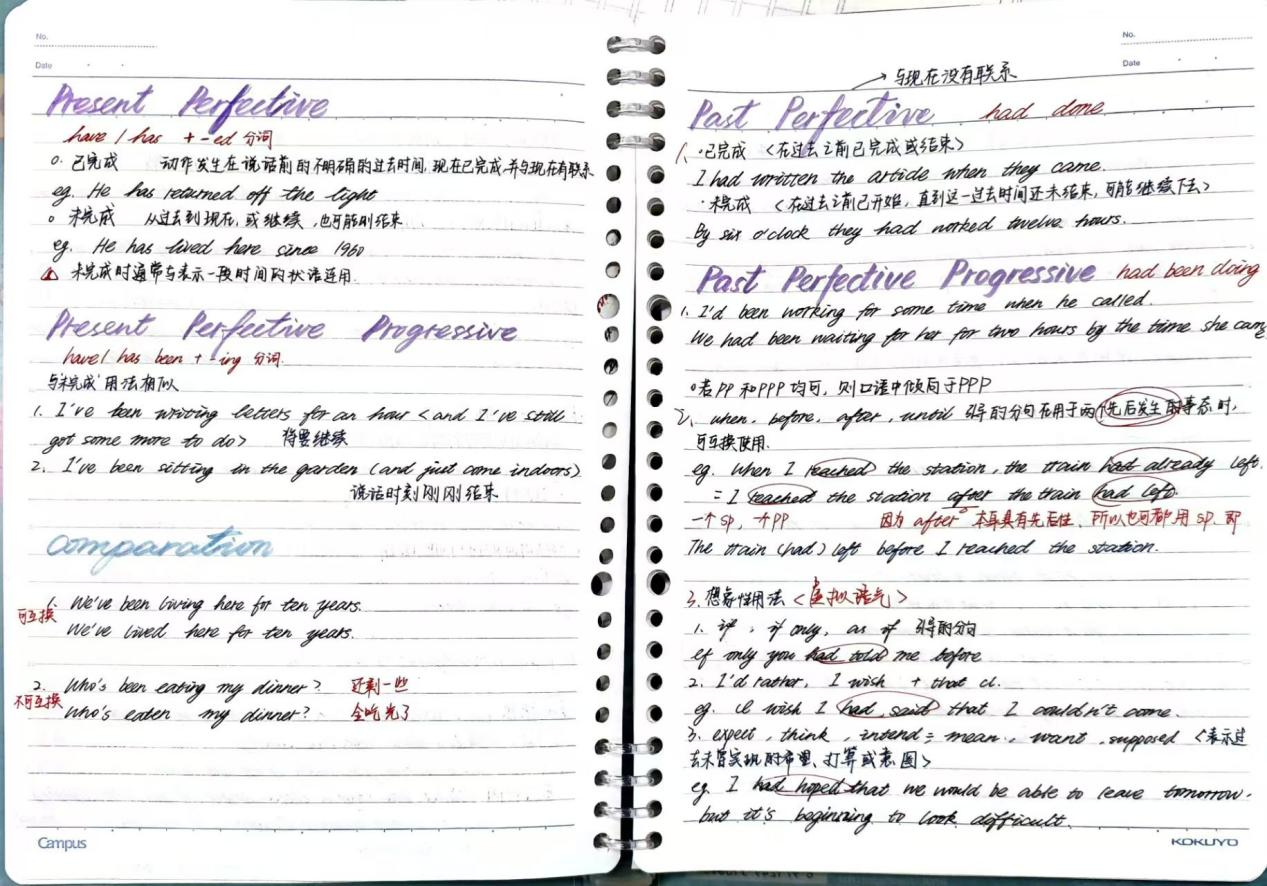 No.
Date
Present Perfective
have / has + -ed 分词
○ 已完成 动作发生在说话前的不明确的过去时间,现在已完成,并与现在有联系
eg. He has returned off the light
○ 未完成 从过去到现在,或继续,也可能刚结束
eg. He has lived here since 1960
⚠ 未完成时通常与表示一段时间的状语连用.
Present Perfective Progressive
have / has been + -ing 分词.
与"未完成"用法相似
1. I've been writing letters for an hour <and I've still
got some more to do> 将要继续
2. I've been sitting in the garden (and just come indoors)
说话时刻刚刚结束
Comparation
可互换 1. We've been living here for ten years.
We've lived here for ten years.
不可互换 2. Who's been eating my dinner? 还剩一些
Who's eaten my dinner? 全吃光了
Campus
No.
Date
→ 与现在没有联系
Past Perfective had done
1. ·已完成 <在过去之前已完成或结束>
I had written the article when they came.
·未完成 <在过去之前已开始,直到这一过去时间还未结束,可能继续下去>
By six o'clock they had worked twelve hours.
Past Perfective Progressive had been doing
1. I'd been working for some time when he called.
We had been waiting for her for two hours by the time she came
○若PP和PPP均可,则口语中倾向于PPP
2. when, before, after, until 引导的分句在用于两个先后发生的事态时,
可互换使用.
eg. When I reached the station, the train had already left.
= I reached the station after the train had left.
一个SP,个PP 因为after本身具有先后性、所以也可都用SP.即
The train (had) left before I reached the station.
3. 想象性用法 <虚拟语气>
1. if, if only, as if 引导的分句
If only you had told me before
2. I'd rather, I wish + that cl.
eg. I wish I had said that I couldn't come.
3. expect, think, intend = mean, want, supposed <表示过
去未曾实现的希望、打算或意图>
eg. I had hoped that we would be able to leave tomorrow.
but it's beginning to look difficult.
KOKUYO